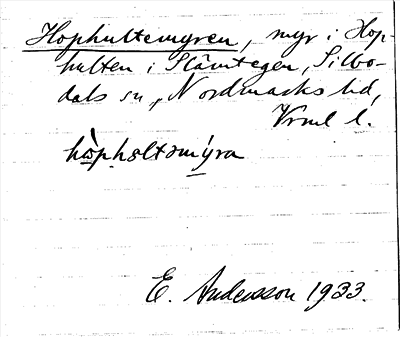 Hophultemyren, myr i Hop-
hulten i Slämtegen, Silbo-
dals sn, Nordmarks hd,
Vrml l.
hòpheltəmýra
E. Andersson 1933.